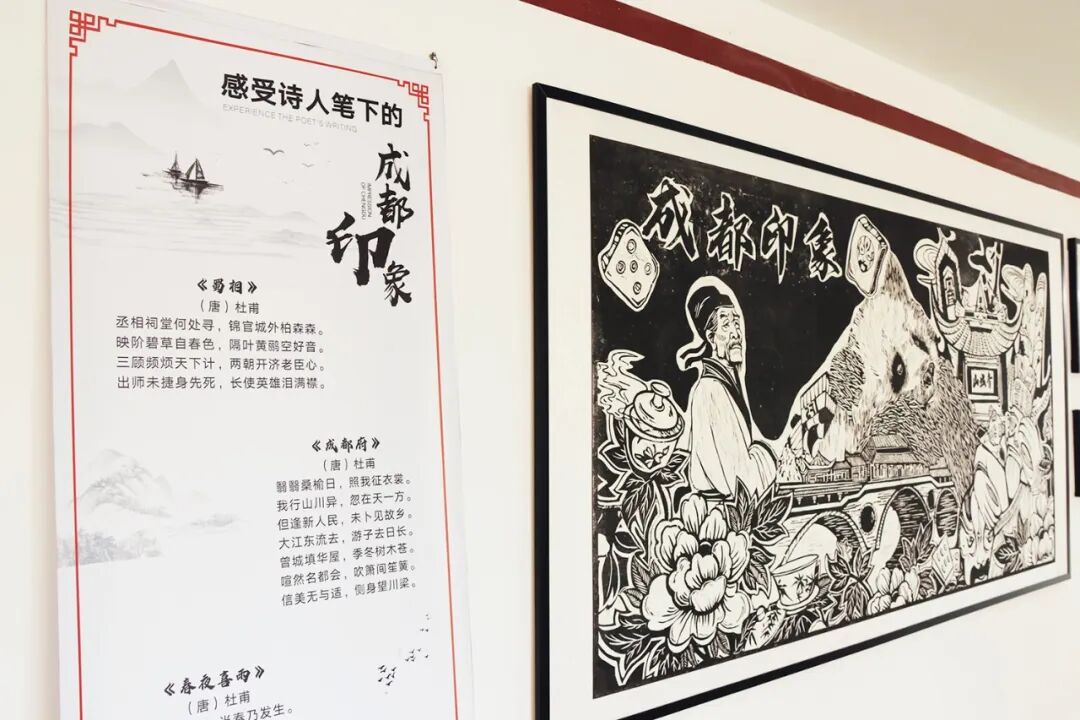 感受诗人笔下的
EXPERIENCE THE POET'S WRITING
成都
IMPRESSION
OF CHENGDU
印象
《蜀相》
（唐）杜甫
丞相祠堂何处寻，锦官城外柏森森。
映阶碧草自春色，隔叶黄鹂空好音。
三顾频烦天下计，两朝开济老臣心。
出师未捷身先死，长使英雄泪满襟。
《成都府》
（唐）杜甫
翳翳桑榆日，照我征衣裳。
我行山川异，忽在天一方。
但逢新人民，未卜见故乡。
大江东流去，游子去日长。
曾城填华屋，季冬树木苍。
喧然名都会，吹箫间笙簧。
信美无与适，侧身望川梁。
《春夜喜雨》
（唐）杜甫
春乃发生。
成都印象